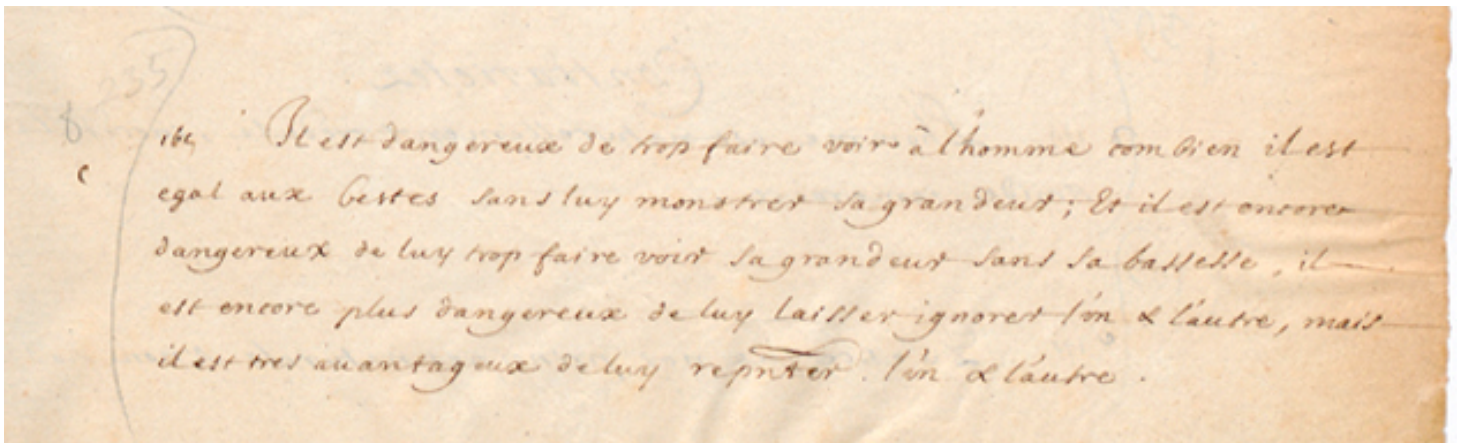 235
165 Il est dangereux de trop faire voir à l'homme combien il est
egal aux bestes sans luy monstrer sa grandeur ; Et il est encore
dangereux de luy trop faire voir sa grandeur sans sa bassesse, il
est encore plus dangereux de luy laisser ignorer l'un & l'autre, mais
il est tres auantageux de luy repnter l'un & l'autre .